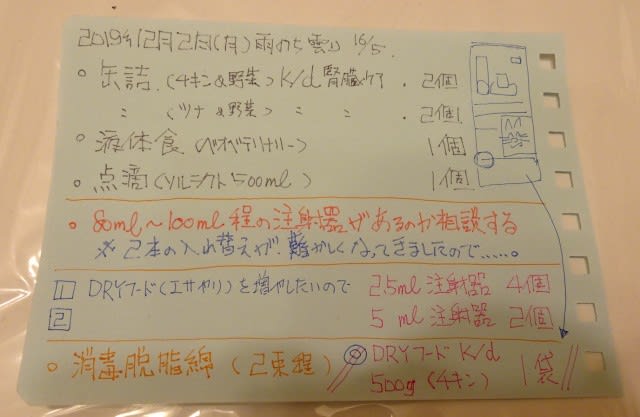 2019年12月2日(月) 雨のち曇り 16/5.
○ 缶詰.(チキン&野菜) K/d 腎臓ケア . 2個
〃 (ツナ&野菜) 〃 〃 . 2個
○ 液体食 (ベオベテリナリー) 1個
○ 点滴 (ソルラクト 500ml) 1個
○ 80ml～100ml程の注射器があるのか相談する
※ 2本の入れ替えが、難かしくなってきましたので……。
1 DRYフード(エサやり)を増やしたいので 2.5ml 注射器 4個
2 5 ml 注射器 2個
○ 消毒脱脂綿 (2束程) DRYフード K/d
500g (チキン) 1袋